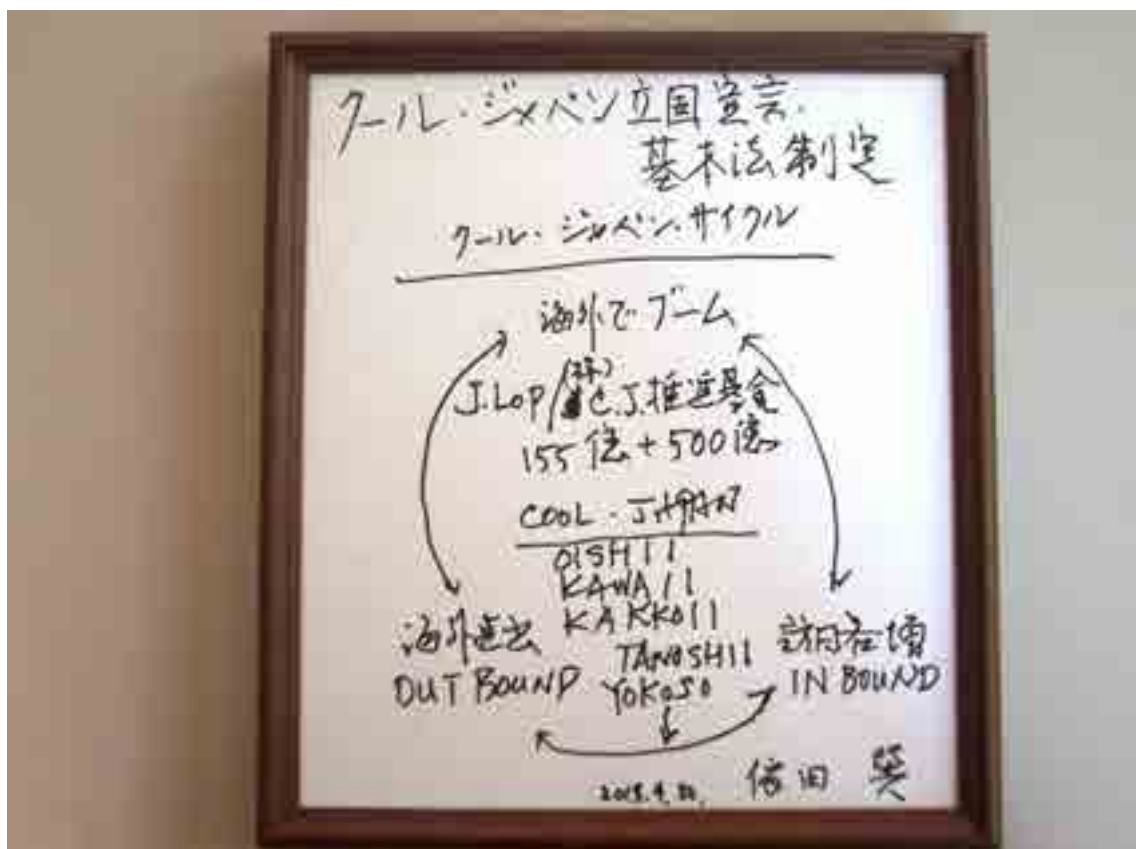 クール・ジャパン立国宣言.
基本法制定
クール・ジャパン・サイクル
海外でブーム
(株)
J.LOP/C.J.推進基金
155億+500億
COOL・JAPAN
OISHII
KAWAII
KAKKOII
TANOSHII
YOKOSO
海外進出
OUT BOUND
訪日客増
IN BOUND
依田 巽